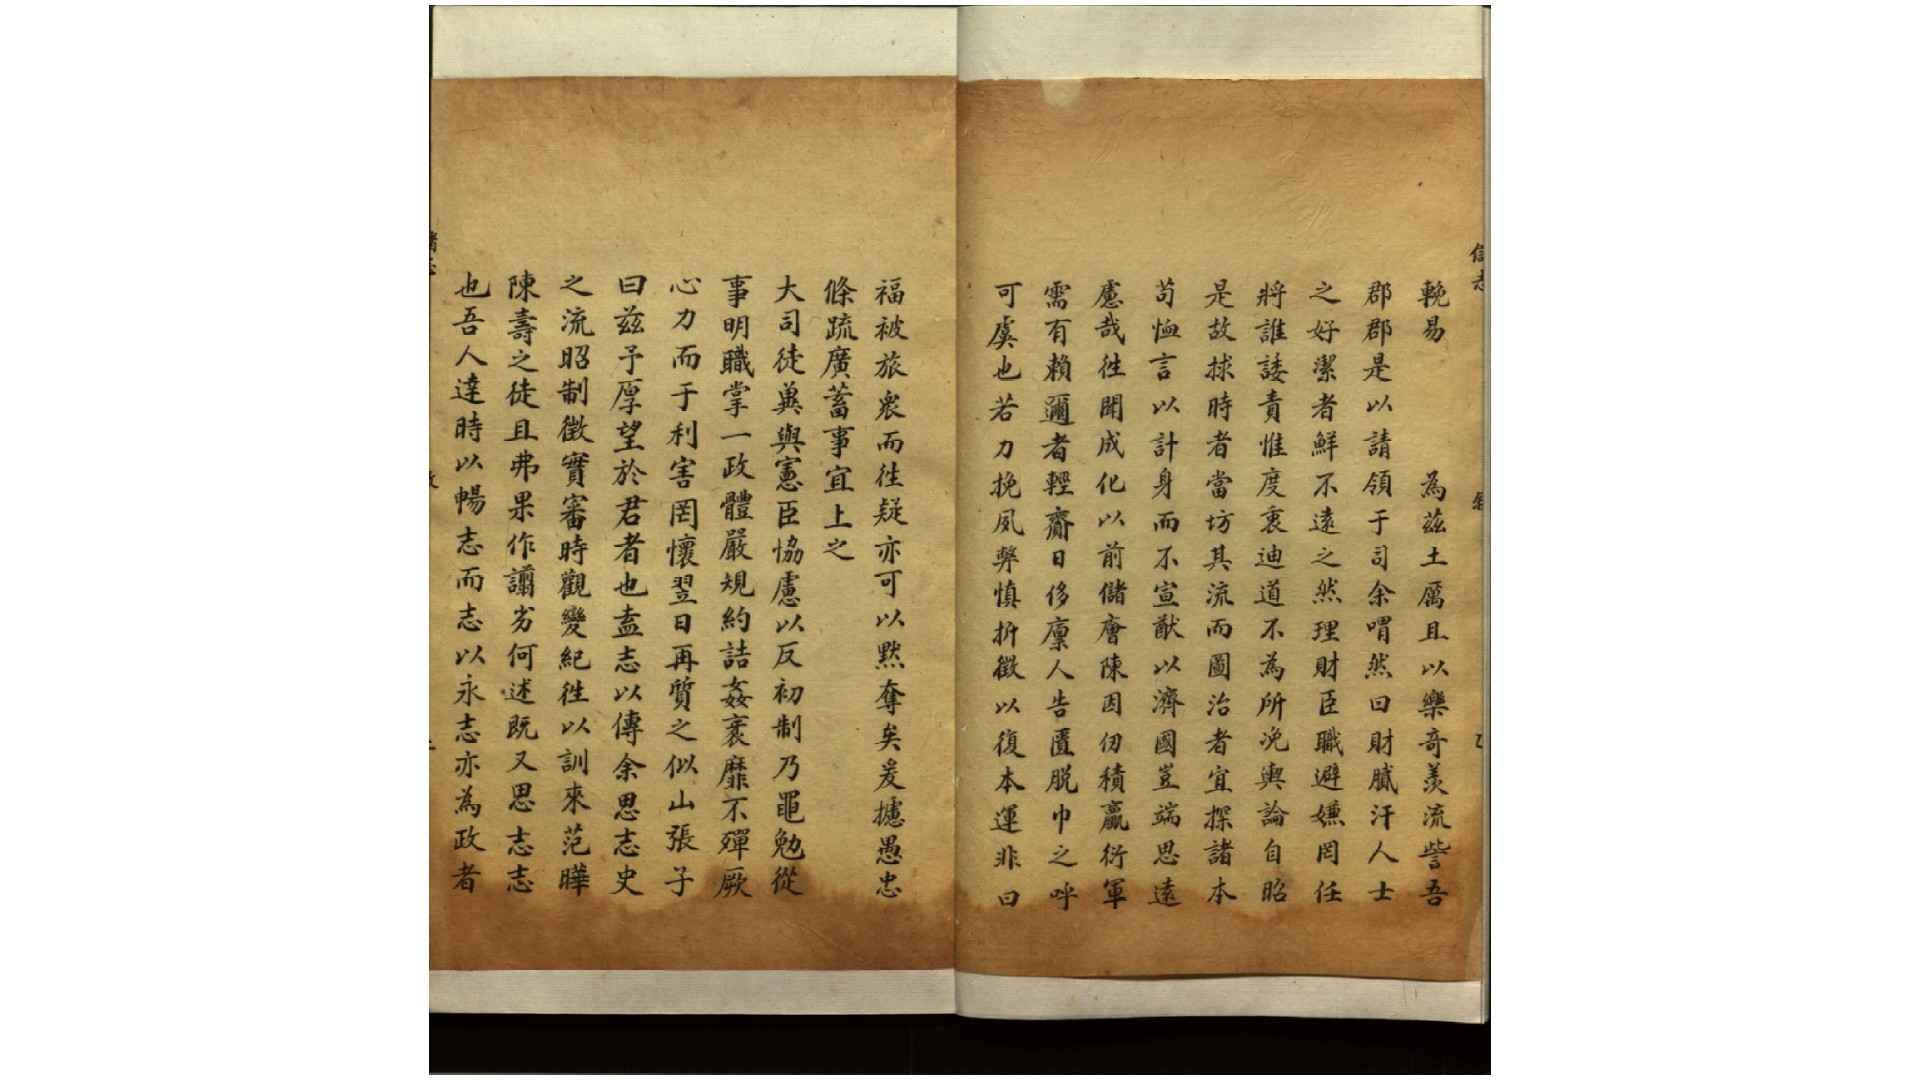 輓易 為茲土厲且以樂竒羨流訾吾
郡郡是以請領于司余喟然曰財膩汙人士
之好潔者鮮不遠之然理財臣職避嫌罔任
將誰諉責惟度衷迪道不為所浼輿論自昭
是故捄時者當坊其流而圖治者宜探諸本
茍恤言以計身而不宣猷以濟國豈端思遠
慮哉徃聞成化以前儲廥陳因仞積贏衍軍
需有賴邇者輕齎日侈廩人告匱脱巾之呼
可虞也若力挽夙弊慎折徵以復本運非曰
福被旅衆而徃疑亦可以默奪矣爰攄愚忠
條疏廣蓄事宜上之
大司徒兾與憲臣恊慮以反初制乃黽勉從
事明職掌一政體嚴規約詰姦袤靡不殫厥
心力而于利害罔懷翌日再質之似山張子
曰茲予厚望於君者也盍志以傳余思志史
之流昭制徵實審時觀變紀徃以訓來范曄
陳壽之徒且弗果作謭劣何述既又思志志
也吾人達時以暢志而志以永志亦為政者